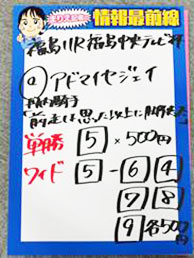 情報最前線
福島11R福島中央テレビ杯
ⓐアドマイヤジェイ
「前走は思った以上に
単勝 5×500円
ワイド 5-64
78
9各500円